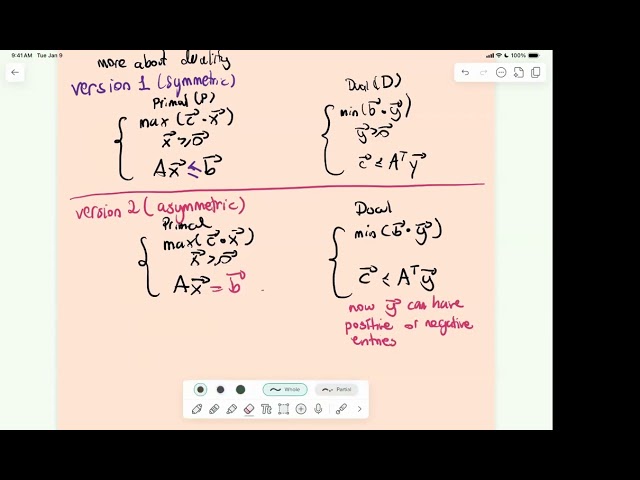 9:41AM Tue Jan 9
100%
more about duality
version 1 (symmetric)
Primal (P)
max (c⃗ • x⃗)
x⃗ ≥ 0⃗
A x⃗ ≤ b⃗
Dual (D)
min (b⃗ • y⃗)
y⃗ ≥ 0⃗
c⃗ ≤ Aᵀ y⃗
version 2 (asymmetric)
Primal
max (c⃗ • x⃗)
x⃗ ≥ 0⃗
A x⃗ = b⃗
Dual
min (b⃗ • y⃗)
c⃗ ≤ Aᵀ y⃗
now y⃗ can have
positive or negative
entries
Whole
Partial